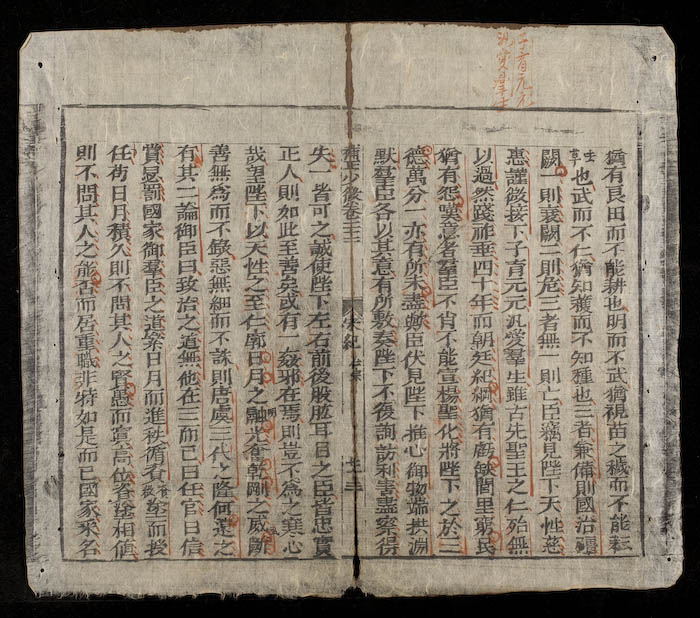 子育元元
汎愛羣生
猶有良田而不能耕也明而不武猶視苗之穢而不能耘
也武而不仁猶知穫而不知種也三者兼備則國治彊
闕一則衰闕二則危三者無一則亡臣竊見陛下天性慈
惠謹微接下子育元元汎愛羣生雖古先聖王之仁殆無
以過然踐祚垂四十年而朝廷紀綱猶有虧缺閭里窮民
猶有怨嘆意者羣臣不肖不能宣揚聖化將陛下之於三
德萬分一亦有所未盡歟臣伏見陛下推心御物端拱淵
默羣臣各以其意有所敷奏陛下不復詢訪利害盡察得
少微卷 宋紀
失一皆可之誠使陛下左右前後股肱耳目之臣皆忠實
正人則如此至善矣或有一姦邪在焉則豈不為之寒心
哉望陛下以天性之至仁廓日月之融光奮乾剛之威斷
善無微而不錄惡無細而不誅則唐虞三代之隆何遠之
有其二論御臣曰致治之道無他在三而已曰任官曰信
賞必罰國家御羣臣之道累日月而進秩循資塗而授
任苟日月積久則不問其人之賢愚而寘高位資塗相值
則不問其人之能否而居重職非特如是而已國家采名